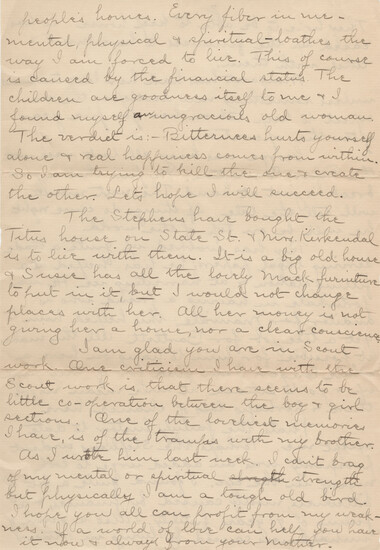 people's homes. Every fiber in me -
mental, physical & spiritual - loathes the
way I am forced to live. This of course
is caused by the financial status. The
children are goodness itself to me & I
found myself an ungracious old woman.
The verdict is :- Bitterness hurts yourself
alone & real happiness comes from within.
So I am trying to kill the one & create
the other. Let's hope I will succeed.
The Stephens have bought the
Titus house on State St. & Mrs. Kirkendal
is to live with them. It is a big old house
& Susie has all the lovely Mack furniture
to put in it, but I would not change
places with her. All her money is not
giving her a home, nor a clear conscience.
I am glad you are in Scout
work. One criticism I have with the
Scout work is that there seems to be
little co-operation between the boy & girl
sections. One of the loveliest memories
I have, is of the tramps with my brother.
As I wrote him last week. I can't brag
of my mental or spiritual strength
but physically I am a tough old bird.
I hope you all can profit from my weak-
ness. If a world of love can help you have
it now & always from your Mother.